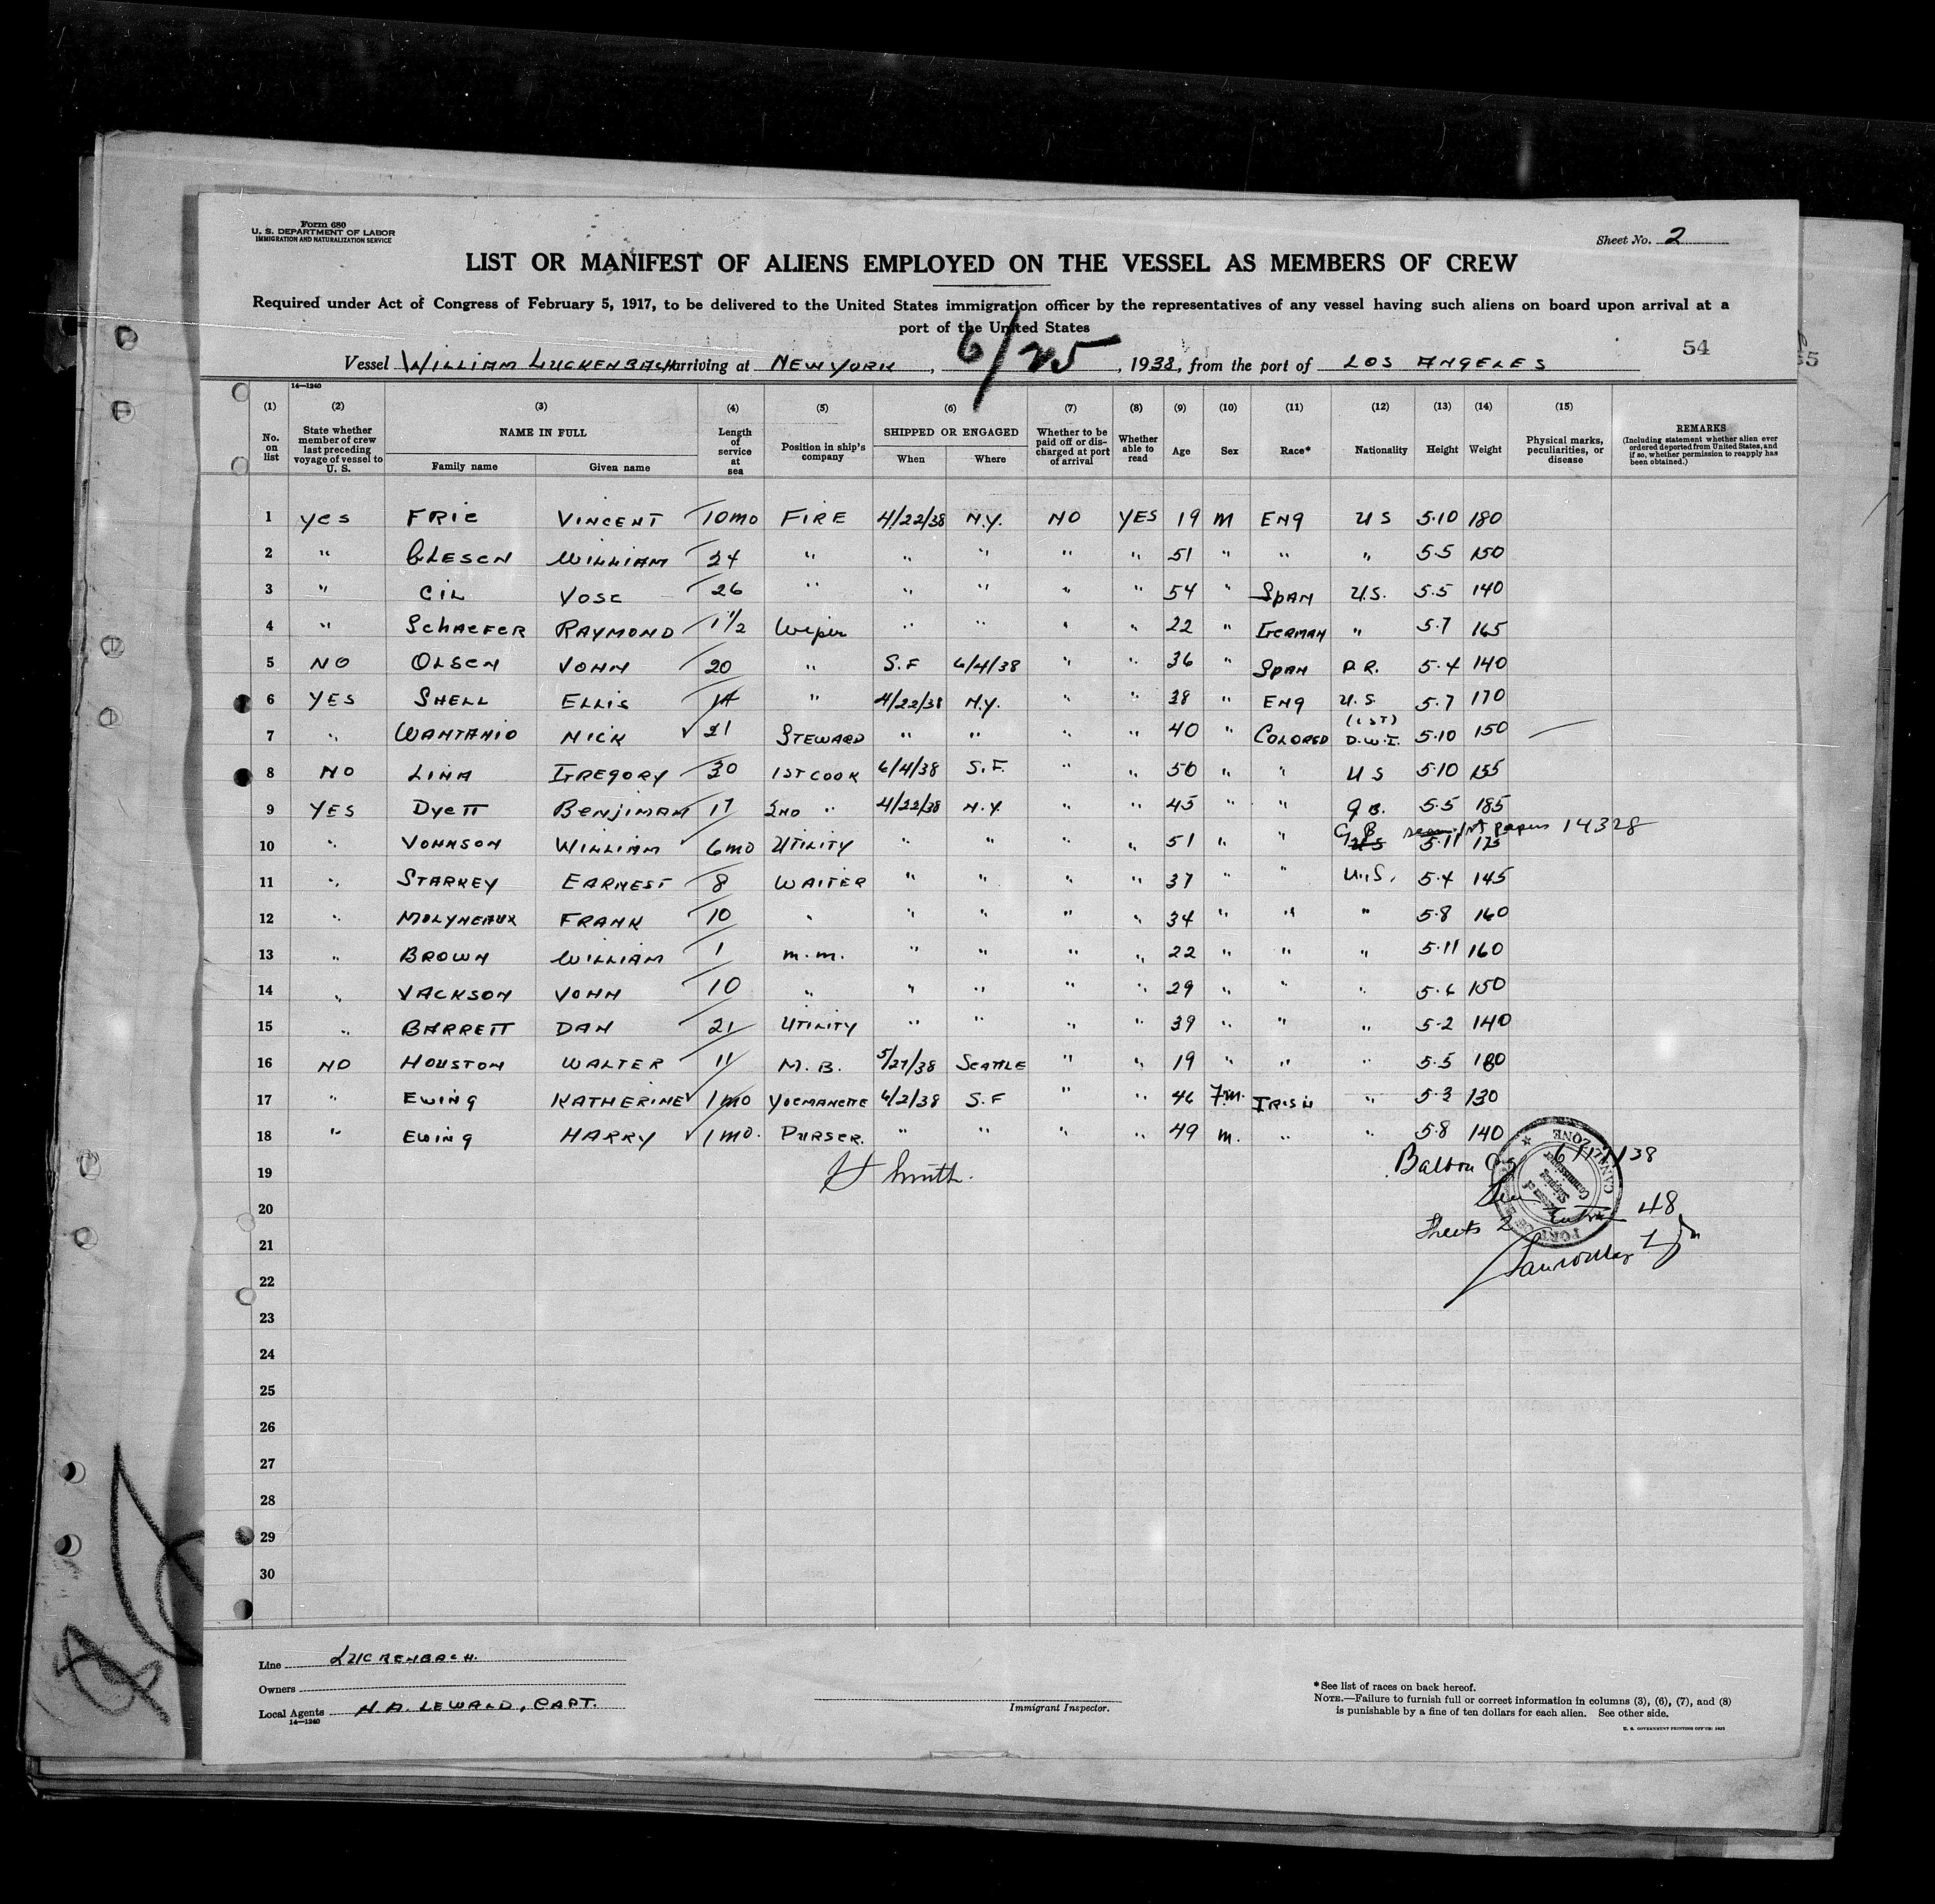 Form 680
U. S. DEPARTMENT OF LABOR
IMMIGRATION AND NATURALIZATION SERVICE
Sheet No. 2
LIST OR MANIFEST OF ALIENS EMPLOYED ON THE VESSEL AS MEMBERS OF CREW
Required under Act of Congress of February 5, 1917, to be delivered to the United States immigration officer by the representatives of any vessel having such aliens on board upon arrival at a
port of the United States
54
Vessel WILLIAM LUCKENBACH arriving at NEW YORK, 6/25, 1938, from the port of LOS ANGELES
14—1240
(1) (2) (3) (4) (5) (6) (7) (8) (9) (10) (11) (12) (13) (14) (15)
No. on list State whether member of crew last preceding voyage of vessel to U. S. NAME IN FULL Family name Given name Length of service at sea Position in ship's company SHIPPED OR ENGAGED When Where Whether to be paid off or discharged at port of arrival Whether able to read Age Sex Race* Nationality Height Weight Physical marks, peculiarities, or disease REMARKS (Including statement whether alien ever ordered deported from United States, and if so, whether permission to reapply has been obtained.)
1 YES FRIE VINCENT 10MO FIRE 4/22/38 N.Y. NO YES 19 M ENG US 5·10 180
2 " GLESEN WILLIAM 24 " " " " " 51 " " " 5·5 150
3 " GIL JOSE 26 " " " " " 54 " SPAN U.S. 5·5 140
4 " SCHAEFER RAYMOND 1 1/2 Wiper " " " " 22 " GERMAN " 5·7 165
5 NO OLSEN JOHN 20 " S.F 6/4/38 " " 36 " SPAN P.R. 5·4 140
6 YES SHELL ELLIS 14 " 4/22/38 N.Y. " " 38 " ENG U.S. 5·7 170
7 " WANTANIO NICK 21 STEWARD " " " " 40 " COLORED (1ST) D.W.I. 5·10 150
8 NO LINA GREGORY 30 1ST COOK 6/4/38 S.F. " " 50 " " US 5·10 155
9 YES DYETT BENJIMAN 17 2ND " 4/22/38 N.Y. " " 45 " " G.B. 5·5 185
10 " JOHNSON WILLIAM 6MO UTILITY " " " " 51 " " G.B. US 5·11 175 1st papers 14328
11 " STARKEY EARNEST 8 WAITER " " " " 37 " " U.S. 5·4 145
12 " MOLYNEAUX FRANK 10 " " " " " 34 " " " 5·8 160
13 " BROWN WILLIAM 1 M.M. " " " " 22 " " " 5·11 160
14 " JACKSON JOHN 10 " " " " " 29 " " " 5·6 150
15 " BARRETT DAN 21 UTILITY " " " " 39 " " " 5·2 140
16 NO HOUSTON WALTER 11 M.B. 5/27/38 SEATTLE " " 19 " " " 5·5 180
17 " EWING KATHERINE 1MO YOEMANETTE 6/2/38 S.F " " 46 Fm. IRISH " 5·3 130
18 " EWING HARRY 1MO. PURSER. " " " " 49 m. " " 5·8 140
19 Smith. Balboa 6/17/38
20 48
21 Sheets 2
22
23
24
25
26
27
28
29
30
CANAL ZONE
Shipping Commissioner
PORT OF
Line LUCKENBACH.
Owners
Local Agents H.A. LEWALD, CAPT.
14—1240
Immigrant Inspector.
*See list of races on back hereof.
NOTE.—Failure to furnish full or correct information in columns (3), (6), (7), and (8)
is punishable by a fine of ten dollars for each alien. See other side.
U. S. GOVERNMENT PRINTING OFFICE: